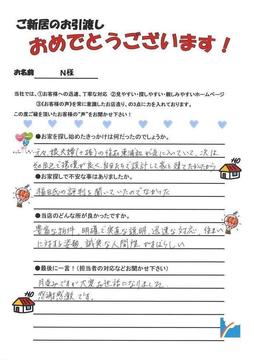 ご新居のお引渡し
おめでとうございます！
お名前 N様
当社では、①お客様への迅速、丁寧な対応 ②見やすい・探しやすい・親しみやすいホームページ
③《お客様の声》を常に意識したお店造り、の3点に力を入れております。
この度ご縁を頂いたお客様の“声”をお聞かせ下さい！
●お家を探し始めたきっかけは何だったのでしょうか。
が気に入っていて、次は
環境が良く、自分たちで設計して家を建てたかったから
●お家探しで不安な事はありましたか。
評判を聞いていたのでなかった
●当店のどんな所が良かったですか。
豊富な物件、明確で実直な説明、迅速な対応、住まい
に対する姿勢、誠実な人間性、すばらしい
●最後に一言！（担当者の対応などお聞かせ下さい）
大変お世話になりました。
感謝感激です。